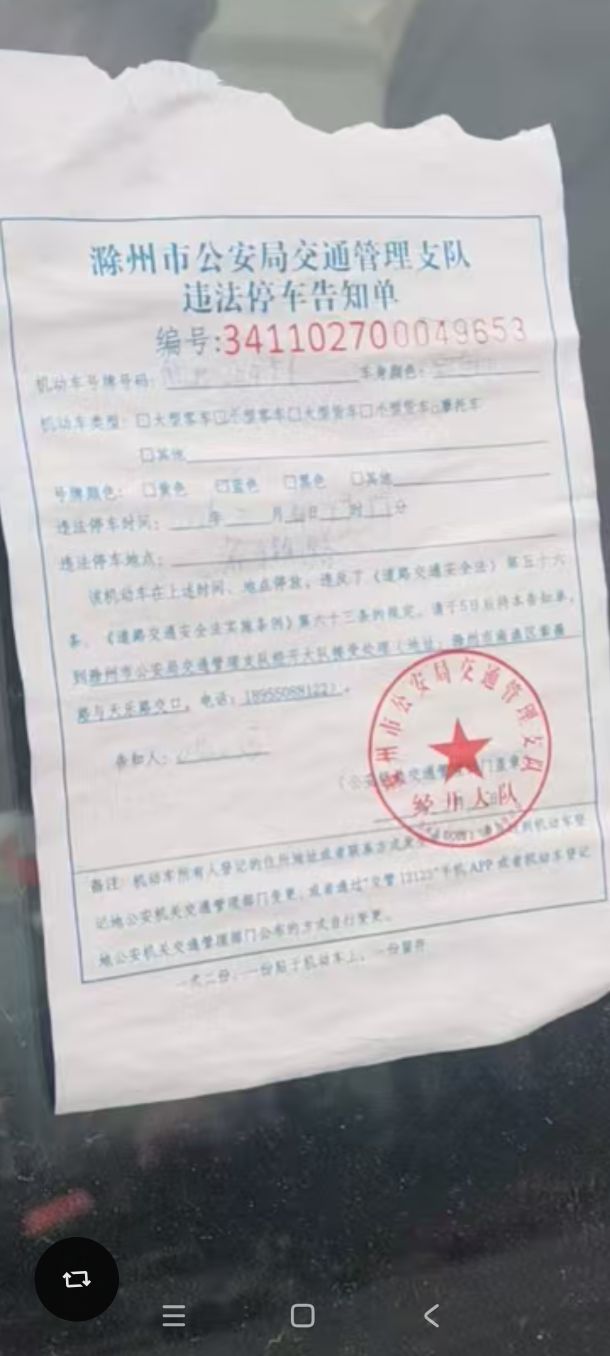 滁州市公安局交通管理支队
违法停车告知单
编号:3411027000049653
机动车号牌号码: 车身颜色:
机动车类型: □大型客车□小型客车□大型货车□小型货车□摩托车
□其他
号牌颜色: □黄色 □蓝色 □黑色 □其他
违法停车时间: 年 月 日 时 分
违法停车地点:
该机动车在上述时间、地点停放,违反了《道路交通安全法》第五十六
条、《道路交通安全法实施条例》第六十三条的规定。请于5日后持本告知单,
到滁州市公安局交通管理支队经开大队接受处理(地址:滁州市南谯区
路与天乐路交口。电话:18955088122)。
告知人:
滁州市公安局交通管理支队
经开大队
备注:机动车所有人登记的住所地址或者联系方式 机动车登
记地公安机关交通管理部门变更,或者通过“交管12123”手机APP或者机动车登记
地公安机关交通管理部门公布的方式自行变更。
一式二份,一份贴于机动车上,一份留存